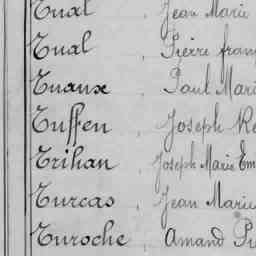 Tual, Jean Marie
Tual, Pierre fran
Tuaux, Paul Mari
Tuffen, Joseph Re
Trihan, Joseph Marie Em
Turcas, Jean Marie
Turoche, Amand Pi